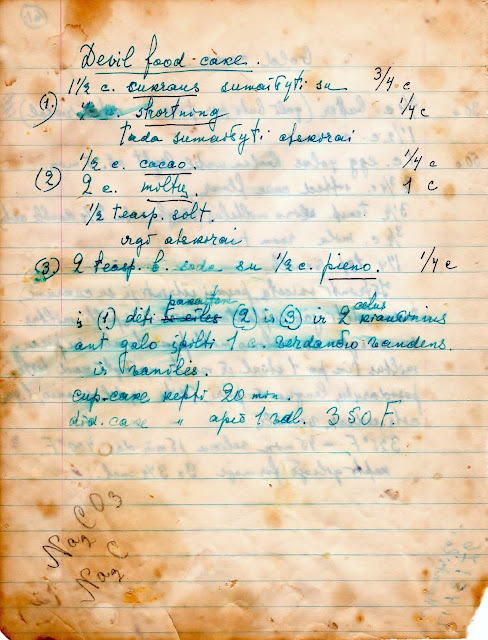 Devil food cake.
1 1/2 c. cukraus sumaišyti su 3/4 c
(1.) 1/2 c. shortning 1/4 c
tada sumaišyti atskirai
1/2 c. cacao. 1/4 c
(2) 2 c. miltų. 1 c
1/2 teasp. solt.
irgi atskirai
(3.) 2 teasp. b. soda su 1/2 c. pieno. 1/4 c
pakaitom
celus
į (1) dėti (2) is (3) ir 2 kiaušinius
ant galo įpilti 1 c. verdančio vandens.
ir vanilės.
cup-cake kepti 20 min.
did. cake " apie 1 val. 350 F.
Na2 CO3
Na2 C